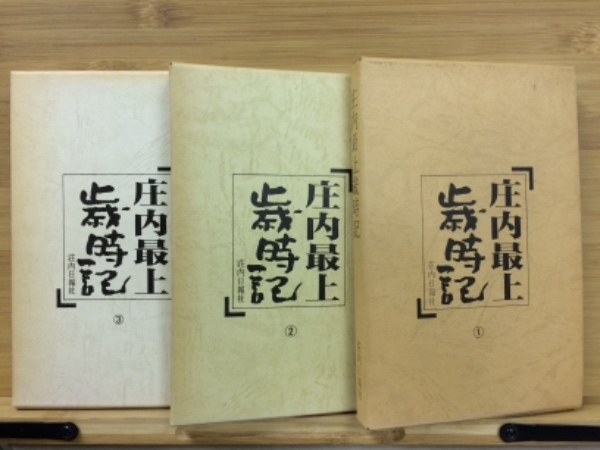 庄内最上
歳時記
荘内日報社
①
庄内最上歳時記
庄内最上
歳時記
荘内日報社
②
庄内最上
歳時記
荘内日報社
③